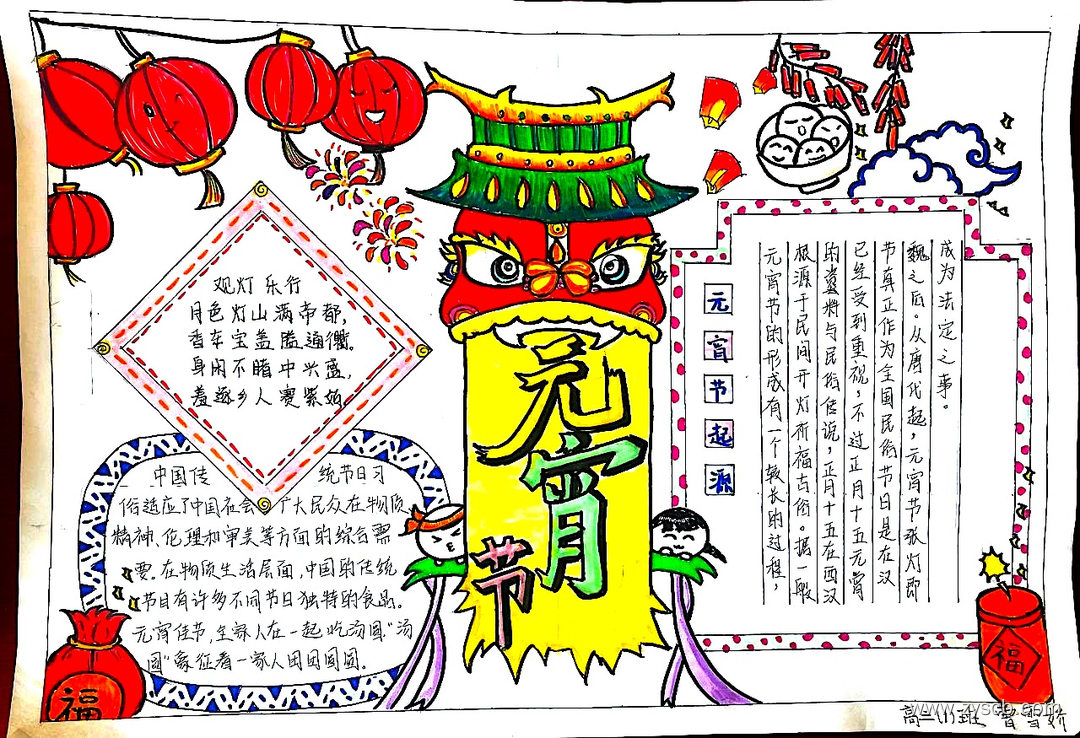 观灯乐行
月色灯山满帝都,
香车宝盖隘通衢。
身闲不睹中兴盛,
羞逐乡人赛紫姑。
中国传 统节日习
俗适应了中国社会 广大民众在物质、
精神、伦理和审美等方面的综合需
要。在物质生活层面,中国的传统
节日有许多不同节日独特的食品。
元宵佳节,全家人在一起吃汤圆."汤
圆"象征着一家人团团圆圆。
福
元宵节
元宵节起源
元宵节的形成有一个较长的过程,
根源于民间开灯祈福古俗。据一般
的资料与民俗传说,正月十五在西汉
已经受到重视,不过正月十五元宵
节真正作为全国民俗节日是在汉
魏之后。从唐代起,元宵节张灯即
成为法定之事。
福
高二(1)班